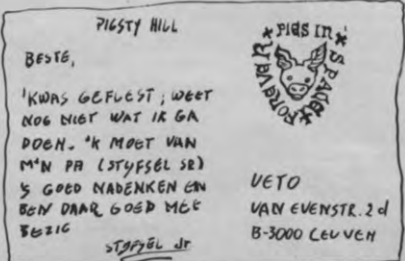 PIGSTY HILL
BESTE,
'KWAS GEFLEST; WEET
NOG NIET WAT IK GA
DOEN. 'K MOET VAN
M'N PA (STYFSEL SR)
'S GOED NADENKEN EN
BEN DAAR GOED MEE
BEZIG
STYFSEL Jr
PIGS IN SPACE FOREVER
VETO
VAN EVENSTR. 2d
B-3000 LEUVEN